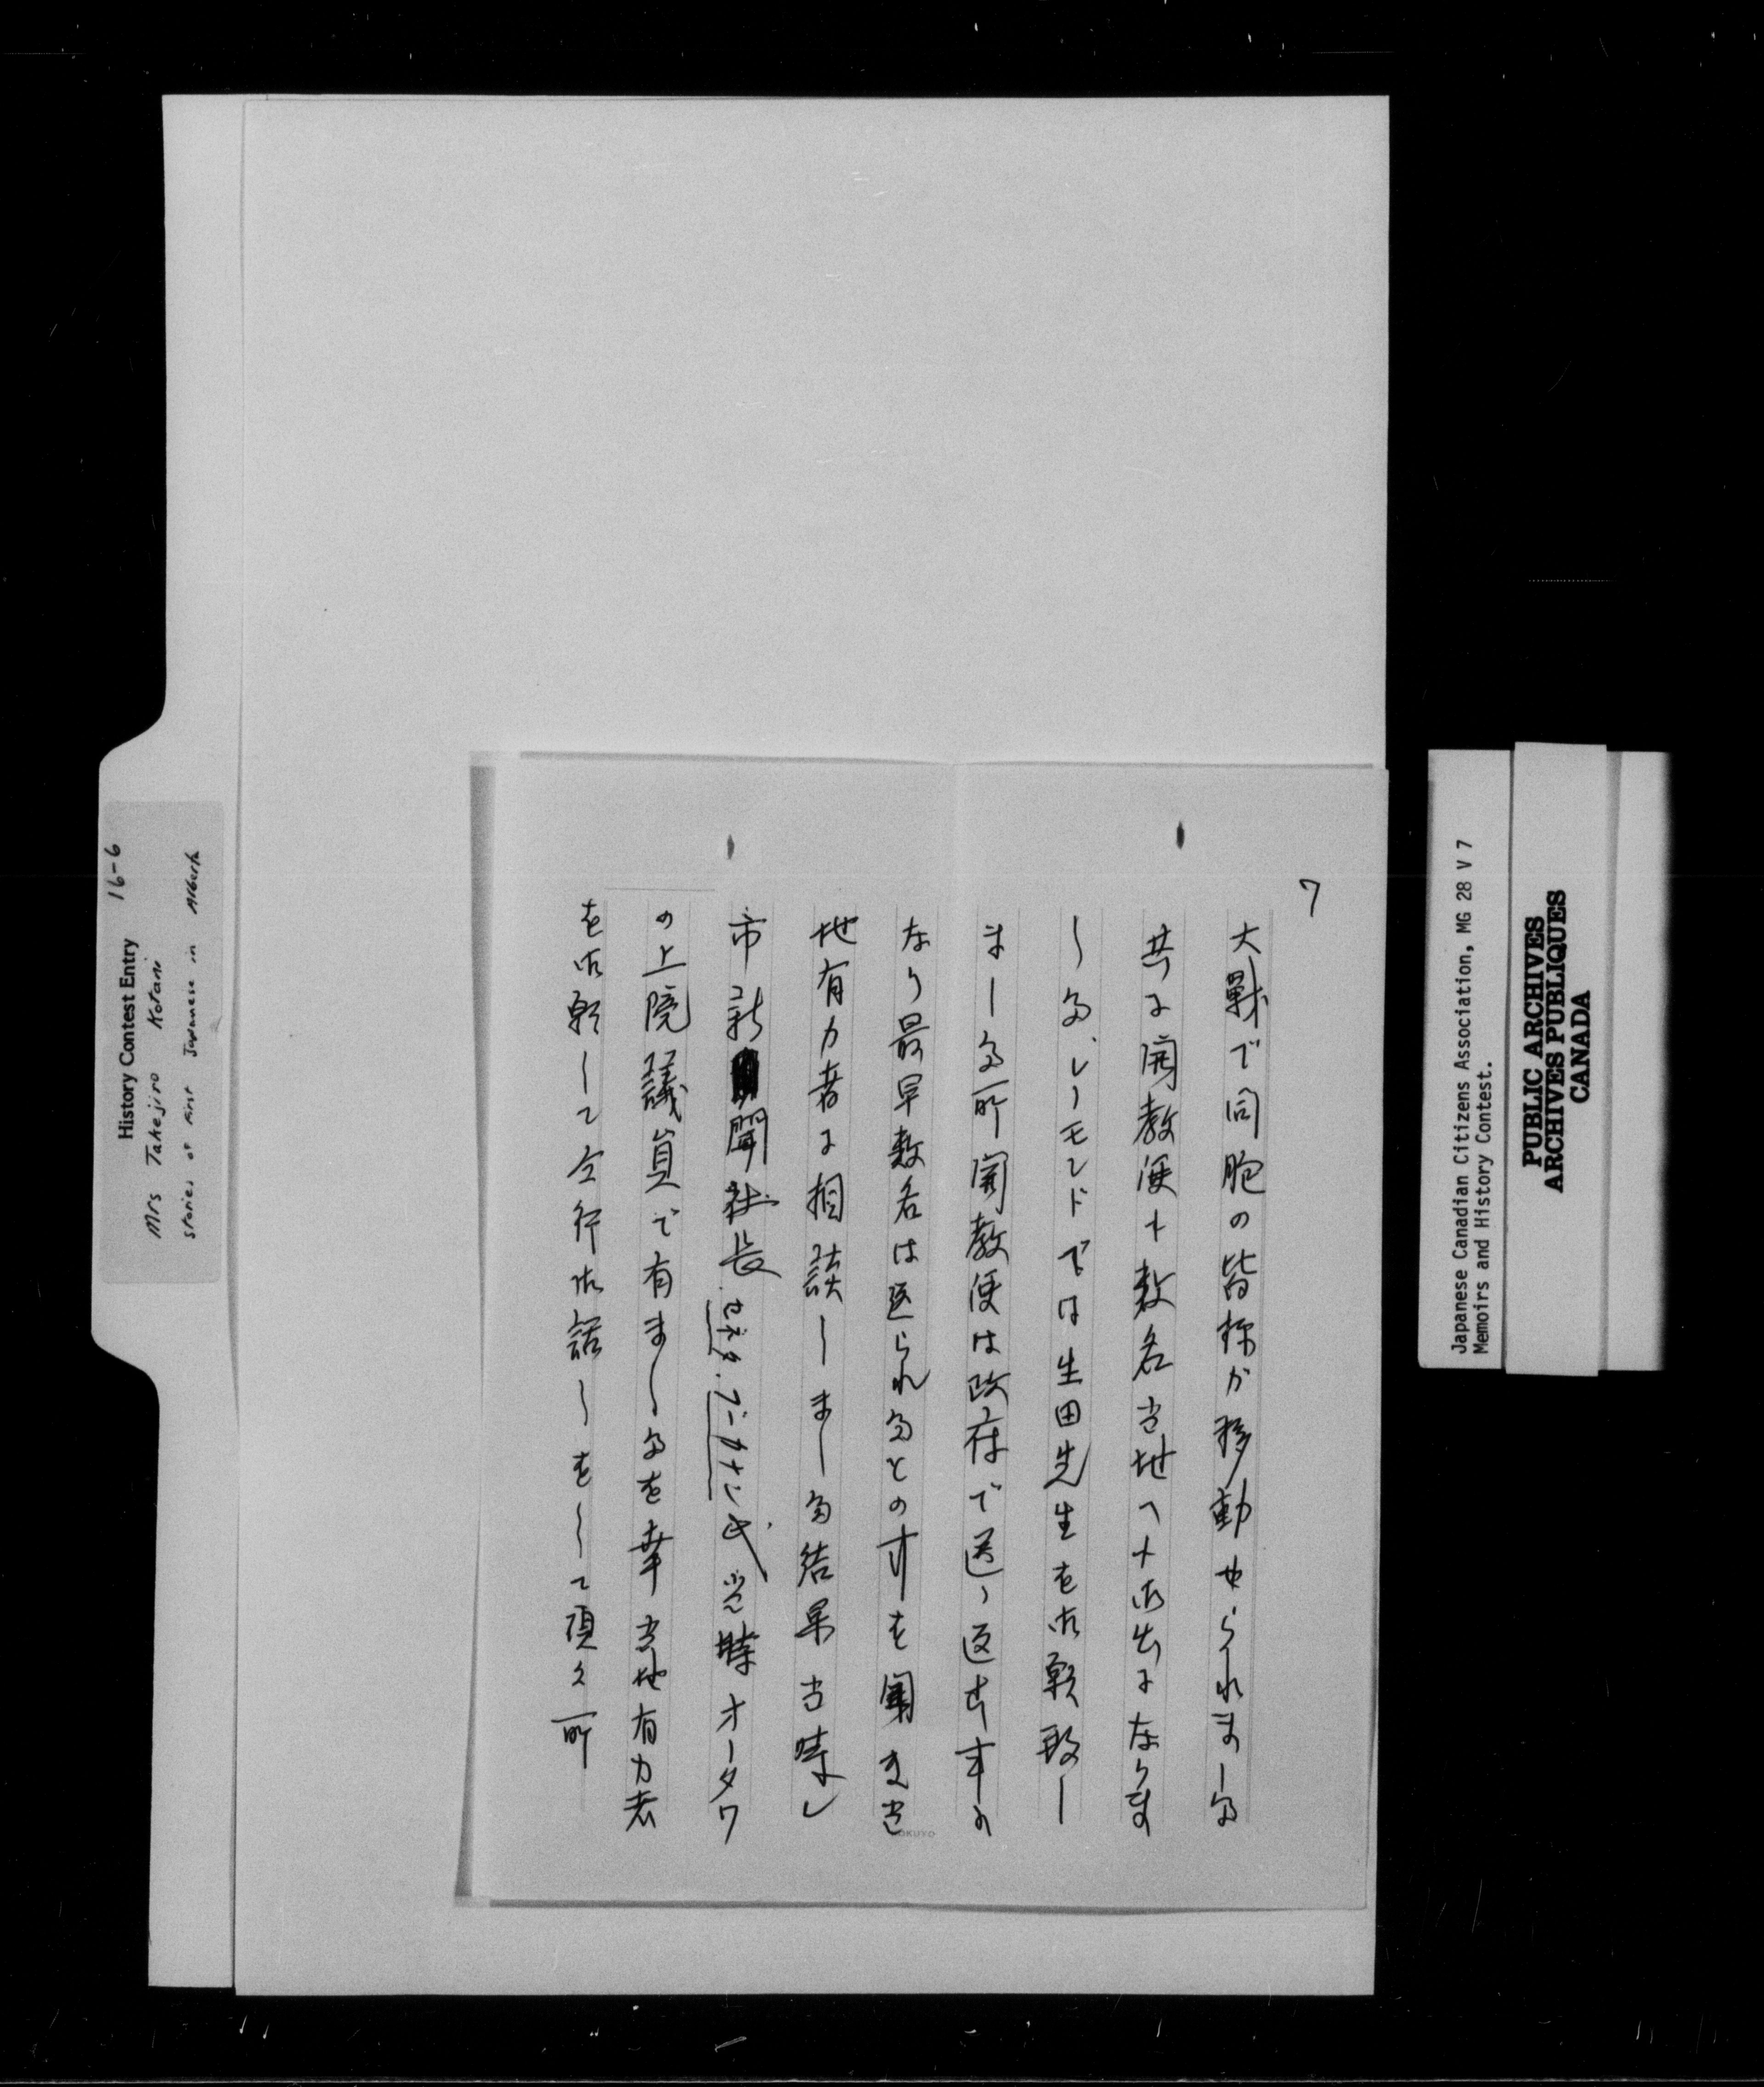 7
大戰で同胞の皆様が移動せられました
共に開教使十数名当地へト御出になりま
した、レーモンドでは生田先生を御願致し
ました所開教使は政府で送り返す事に
なり最早数名は送られたとの事を聞き当
地有力者に相談しました結果古時レ
市新聞社長 セネタ、ブカナン氏、当時オータワ
の上院議員で有ましたを幸当地有力者
を御願して全行御話しをして頂く所
KOKUYO
History Contest Entry 16-6
Mrs Takejiro Kotani
stories of first Japanese in Alberta
Japanese Canadian Citizens Association, MG 28 V 7
Memoirs and History Contest.
PUBLIC ARCHIVES
ARCHIVES PUBLIQUES
CANADA